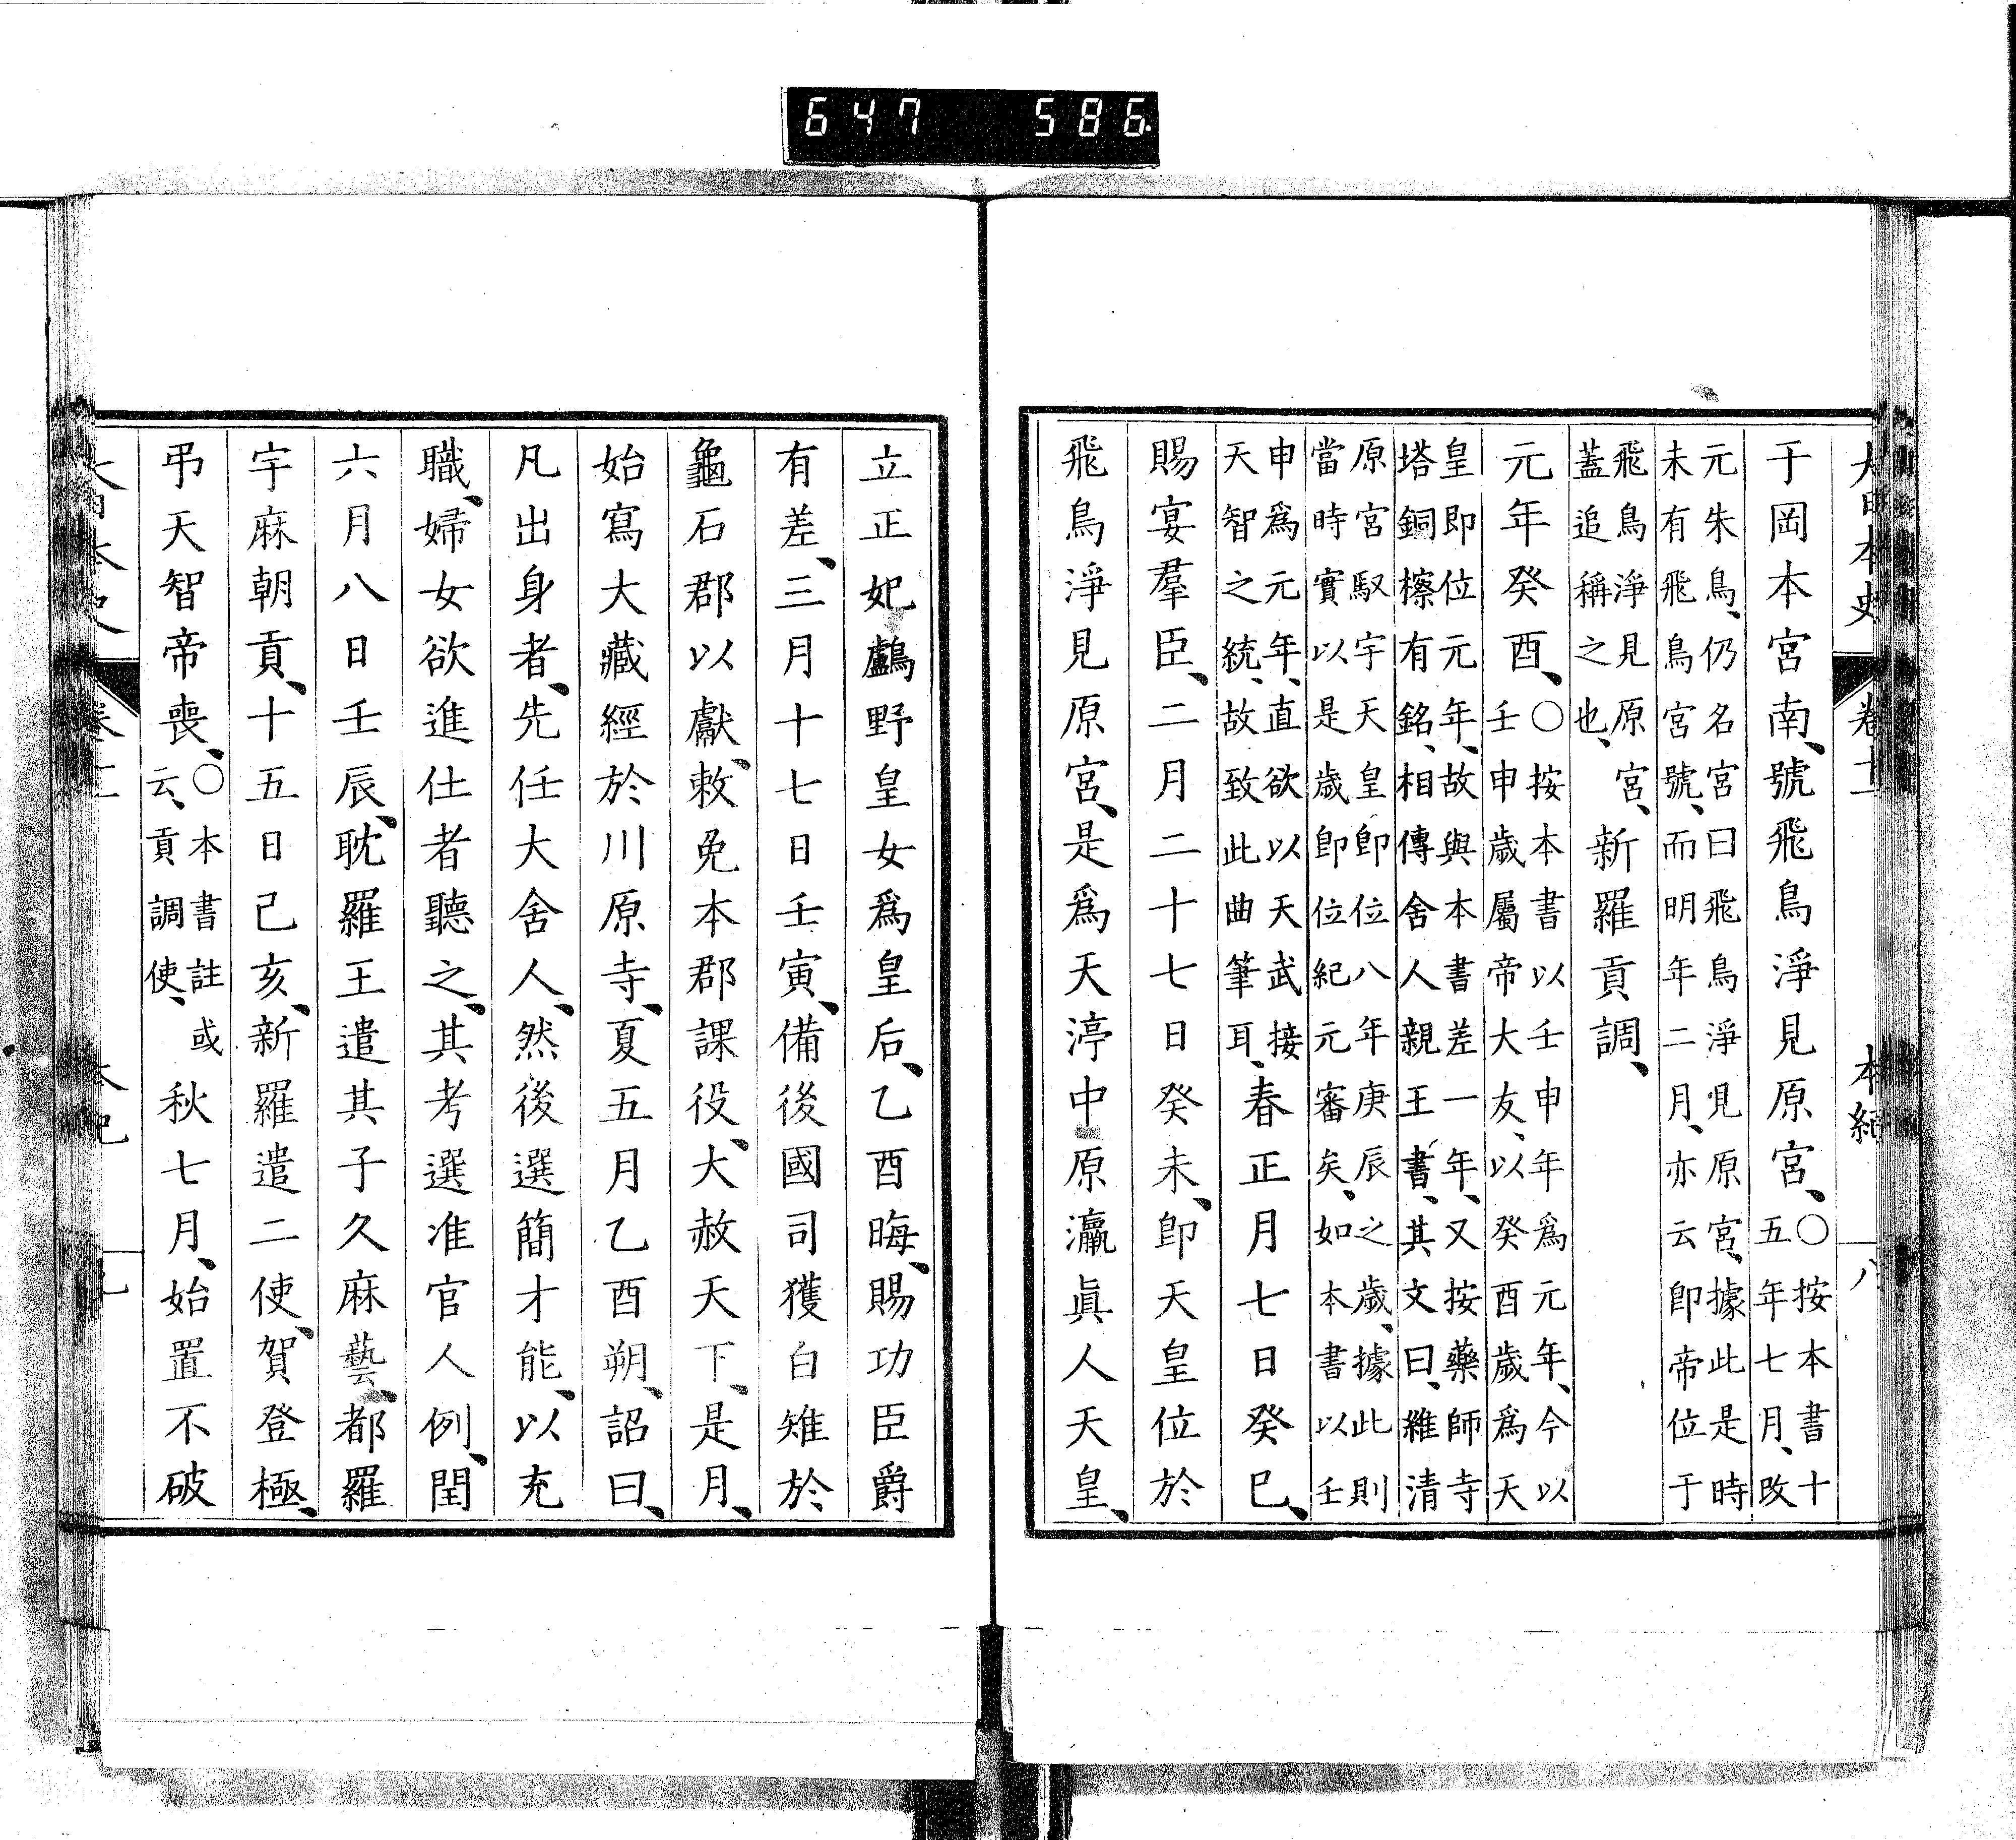 647 586.
大日本史 卷十一 本紀 八
于岡本宮南、號飛鳥淨見原宮、○按本書十
五年七月、改
元朱鳥、仍名宮曰飛鳥淨見原宮、據此是時
未有飛鳥宮號、而明年二月、亦云卽帝位于
飛鳥淨見原宮、
蓋追稱之也、新羅貢調、
元年癸酉、○按本書以壬申年爲元年、今以
壬申歲屬帝大友、以癸酉歲爲天
皇卽位元年、故與本書差一年、又按藥師寺
塔銅檫有銘、相傳舍人親王書、其文曰、維清
原宮馭宇天皇卽位八年庚辰之歲、據此則
當時實以是歲卽位紀元審矣、如本書以壬
申爲元年、直欲以天武接
天智之統、故致此曲筆耳、春正月七日癸巳、
賜宴羣臣、二月二十七日癸未、卽天皇位於
飛鳥淨見原宮、是爲天渟中原瀛眞人天皇、
立正妃鸕野皇女爲皇后、乙酉晦、賜功臣爵
有差、三月十七日壬寅、備後國司獲白雉於
龜石郡以獻、敕免本郡課役、大赦天下、是月、
始寫大藏經於川原寺、夏五月乙酉朔、詔曰、
凡出身者、先任大舍人、然後選簡才能、以充
職、婦女欲進仕者聽之、其考選准官人例、閏
六月八日壬辰、耽羅王遣其子久麻藝、都羅
宇麻朝貢、十五日己亥、新羅遣二使、賀登極、
弔天智帝喪、○本書註或
云、貢調使、秋七月、始置不破